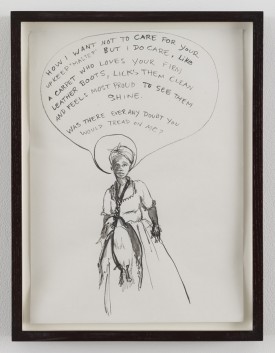 HOW I WANT NOT TO CARE FOR YOUR
"MASTER" BUT I DO CARE, LIKE
A CARPET WHO LOVES YOUR FIRM
LEATHER BOOTS, LICKS THEM CLEAN
AND FEELS MOST PROUD TO SEE THEM
SHINE.
WAS THERE EVER ANY DOUBT YOU
WOULD TREAD ON ME?